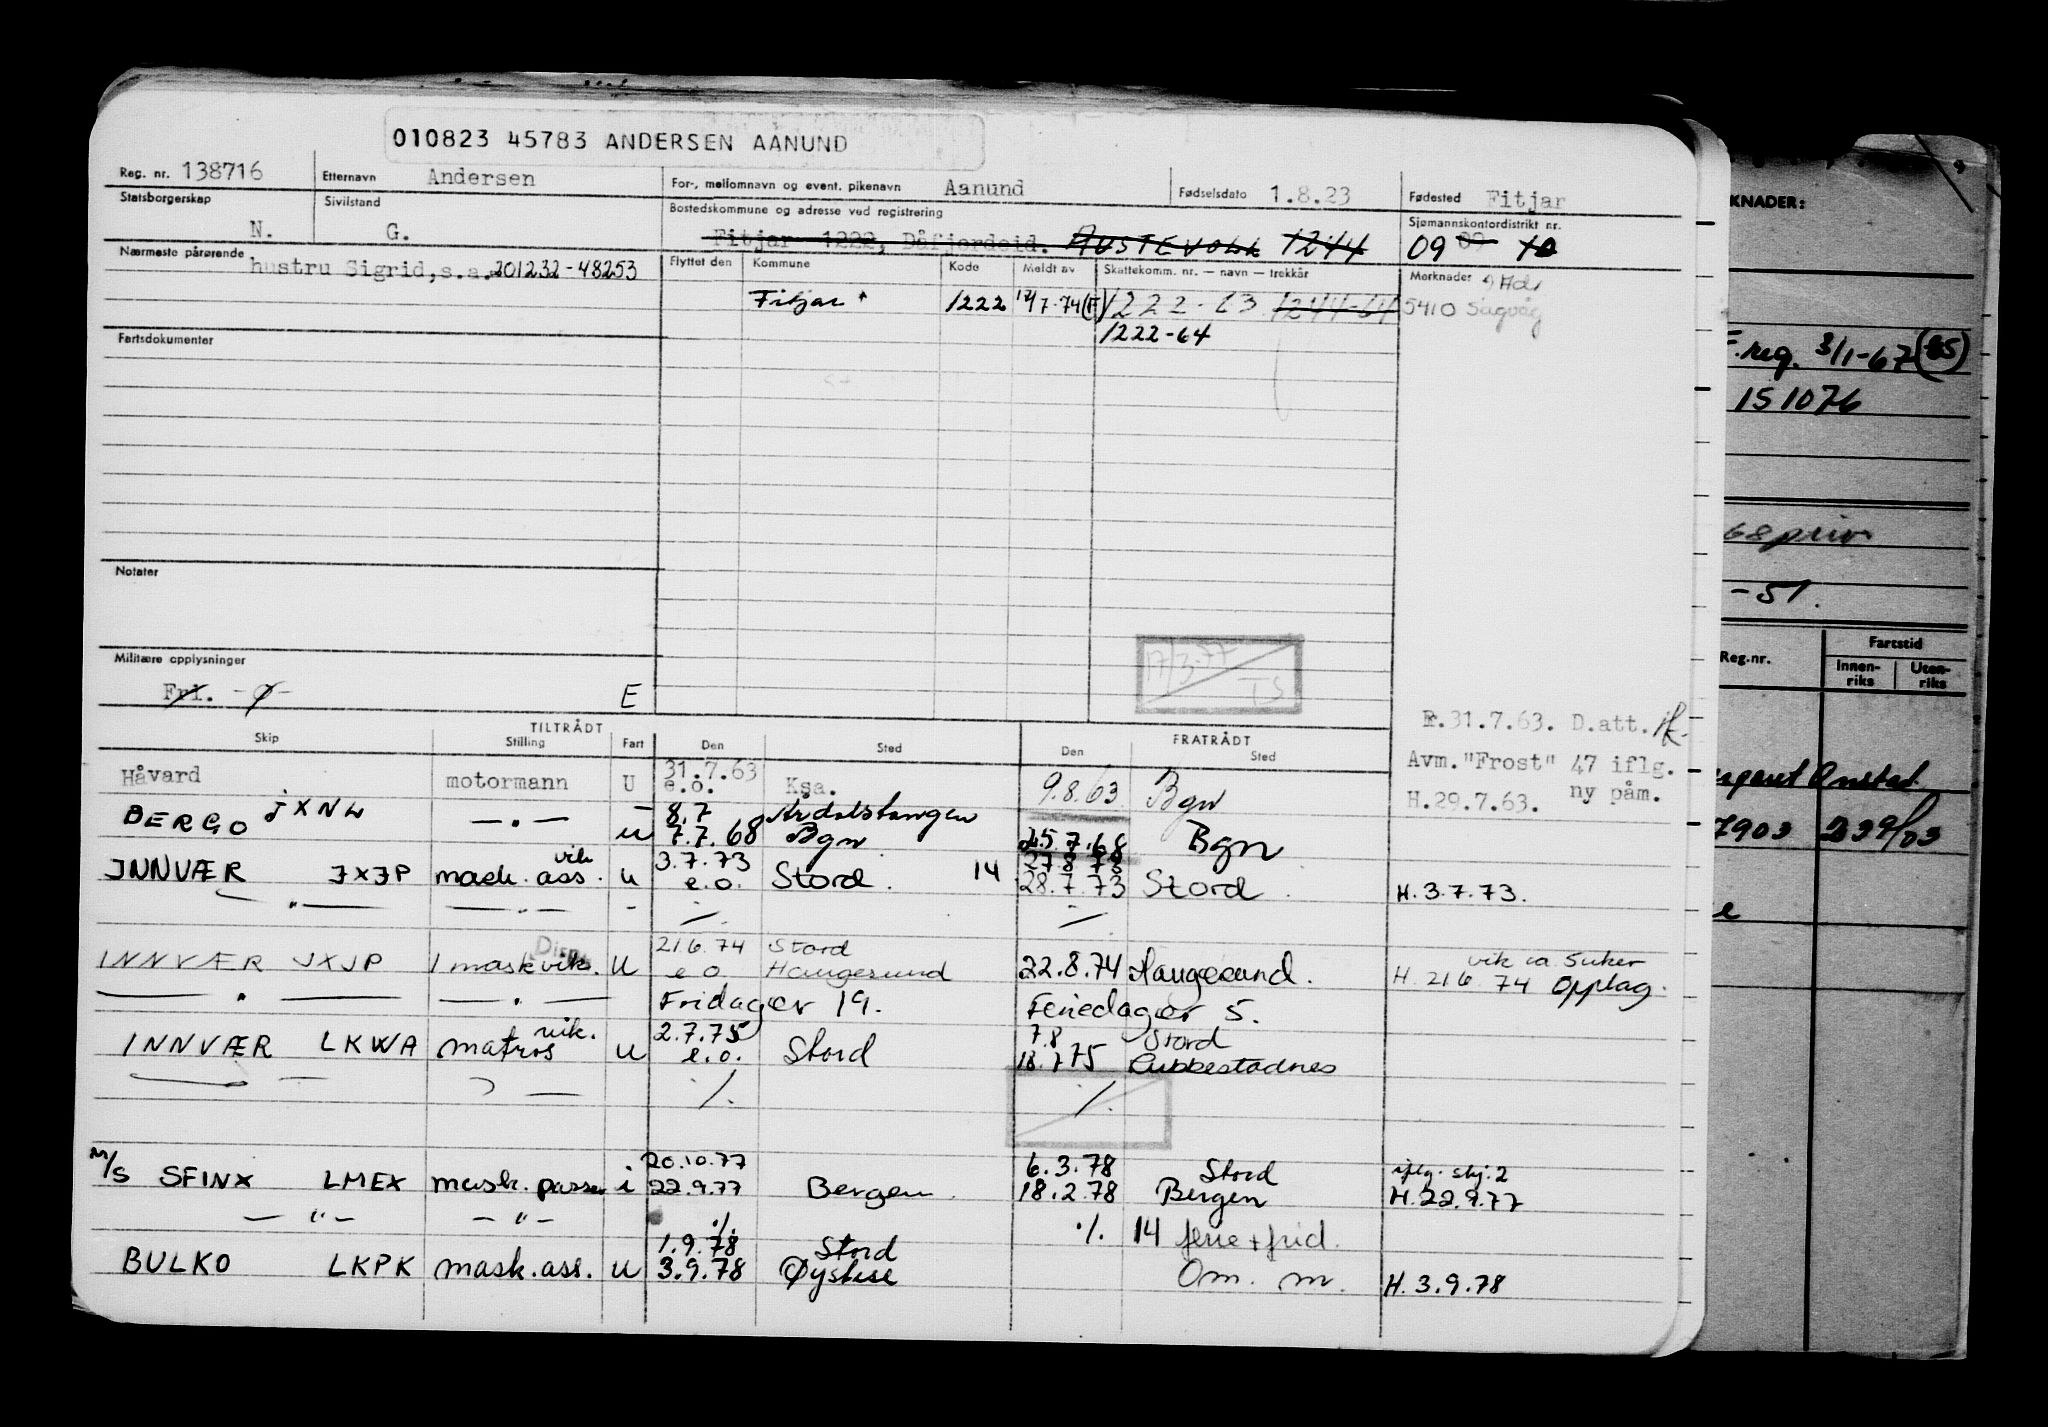 010823 45783 ANDERSEN AANUND
Reg. nr. 138716 Etternavn Andersen For-, mellomnavn og event. pikenavn Aanund Fødselsdato 1.8.23 Fødested Fitjar
Statsborgerskap N. Sivilstand G. Bostedskommune og adresse ved registrering Fitjar 1222, Dåfjordeid. AUSTEVOLL 1244 Sjømannskontordistrikt nr. 09 09 10
Nærmeste pårørende hustru Sigrid, s.a. 201232-48253 Flyttet den Kommune Kode Meldt av Skattekomm. nr. — navn — trekkår Merknader
Fitjar 1222 12/7-74(F) 1222-63 1244-64 5410 Sagvåg
1222-64
Fartsdokumenter
Notater
Militære opplysninger
Fri. -Ø- E
17/3-77 TS
F.31.7.63. D.att.
Avm."Frost" 47 iflg.
H.29.7.63. ny påm.
TILTRÅDT FRATRÅDT
Skip Stilling Fart Den Sted Den Sted
Håvard motormann U 31.7.63 e.o. Ksa. 9.8.63 Bgn
BERGO JXNW — " — 8.7 Årdalstangen
u 7.7.68 Bgn 25.7.68 Bgn
INNVÆR JXJP mask. ass. vik u 3.7.73 e.o. Stord. 14 27 8 73 28.7.73 Stord. H.3.7.73.
— " — — " — - ./. ./.
INNVÆR JXJP 1 mask vik. Disp. U 21.6.74 Stord e.o. Haugesund 22.8.74 Haugesund. H. 21.6.74 vik ca. 5 uker opplag.
— " — — " — Fridager 19. Feriedager 5.
INNVÆR LKWA matros vik. u 2.7.75 e.o. Stord 7.8 Stord
18.7.75 Rubbestadnes
./. ./.
M/S SFINX LMEX mask. passer i 20.10.77 22.9.77 Bergen. 6.3.78 Stord 18.2.78 Bergen iflg. skj. 2 H.22.9.77
— " — — " — ./. ./. 14 ferie + frid.
BULKO LKPK mask. ass. u 1.9.78 Stord 3.9.78 Øystese Om. m. H. 3.9.78
KNADER:
F.reg. 3/1-67 (85)
151076
68 priv
-51.
Reg.nr. Fartstid
Innen-riks Uten-riks
7903 239/03